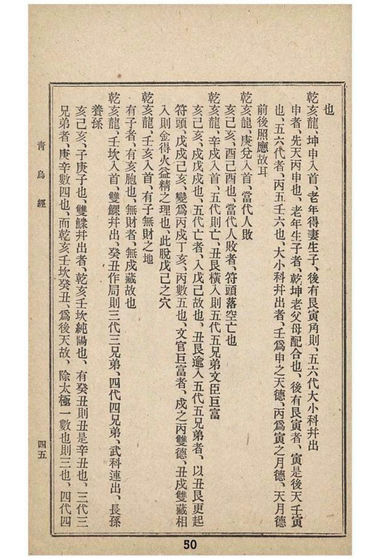 也
乾亥龍、坤申入首、老年得妻生子、後有艮寅角則、五六代大小科幷出
申者、先天丙申也、老年生子者、乾坤老父母配合也、後有艮寅者、寅是後天壬寅
也、五六代者、丙五壬六也、大小科幷出者、壬爲申之天德、丙爲寅之月德、天月德
前後照應故耳
乾亥龍、庚兌入首、當代人敗
亥己亥、酉己酉也、當代人敗者、符頭落空亡也
乾亥龍、辛戌入首、五代則亡、丑艮橫入則五代五兄弟文臣巨富
亥己亥、戌戊戌也、五代亡者、入戊己故也、丑艮逾入五代五兄弟者、以丑艮更起
符頭、戊戌己亥、變爲丙戌丁亥、丙數五也、文官巨富者、戌之丙雙德、丑戌雙藏相
入則金得火益精之理也、此脫戊己之穴
乾亥龍、壬亥入首、有子無財之地
有子者、有亥胞也、無財者、無戌藏故也
乾亥龍、壬坎入首、雙鰥幷出、癸丑作局則三代三兄弟、四代四兄弟、武科連出、長孫
養孫
亥己亥、子庚子也、雙鰥幷出者、乾亥壬坎純陽也、有癸丑則丑是辛丑也、三代三
兄弟者、庚辛數四也、而乾亥壬坎癸丑、爲後天故、除太極一數也則三也、四代四
靑烏經
四五
50